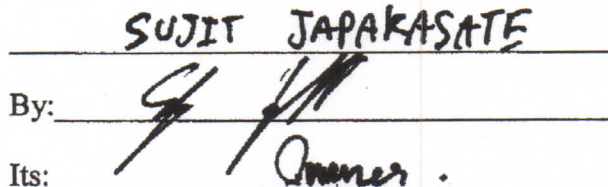 SUJIT JAPAKASATE
By:
Its: Owner.